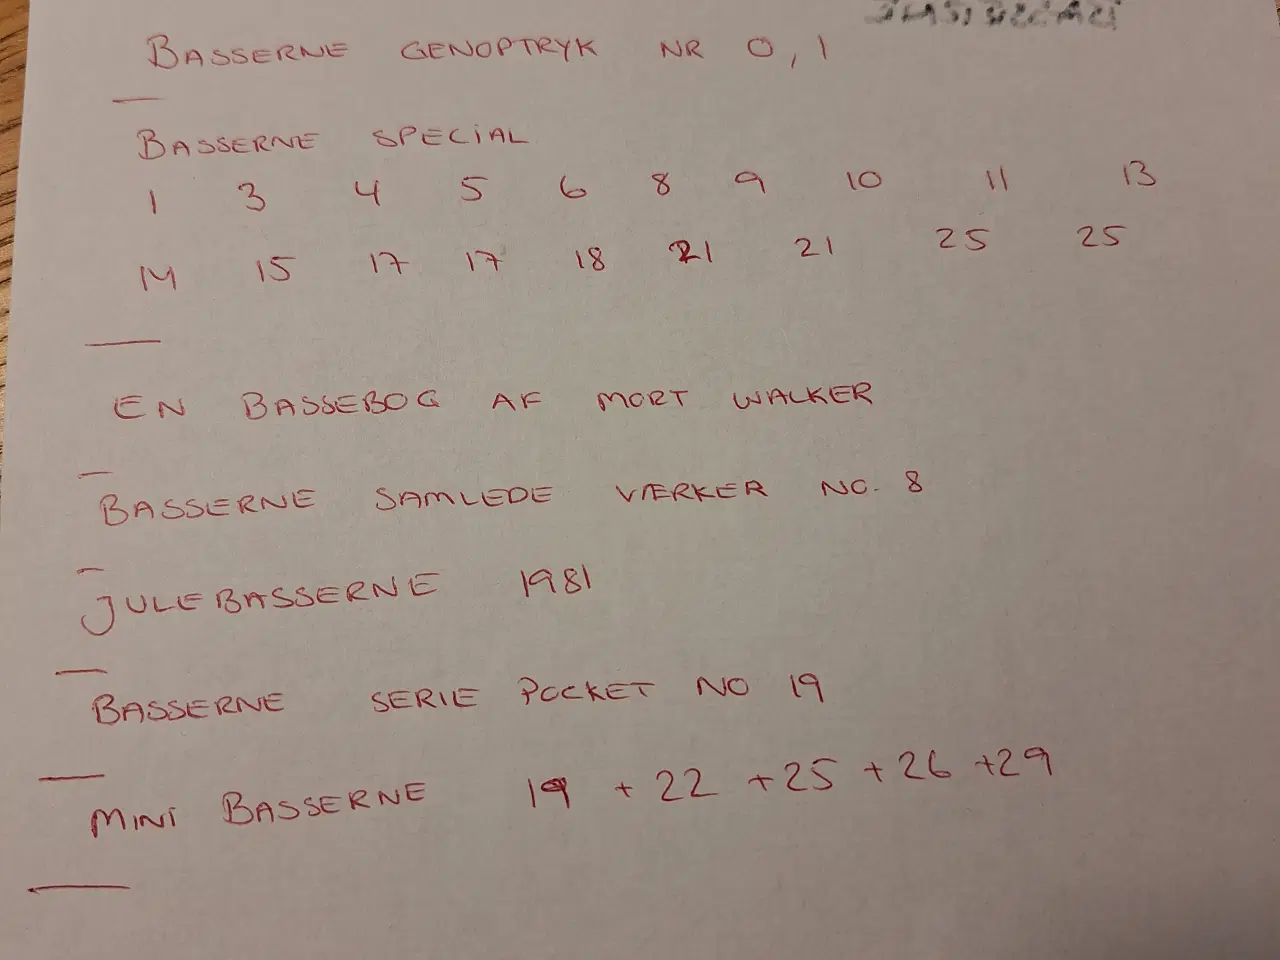 BASSERNE GENOPTRYK NR 0, 1
BASSERNE SPECIAL
1 3 4 5 6 8 9 10 11 13
14 15 17 17 18 21 21 25 25
EN BASSEBOG AF MORT WALKER
BASSERNE SAMLEDE VÆRKER NO. 8
JULEBASSERNE 1981
BASSERNE SERIE POCKET NO 19
MINI BASSERNE 19 + 22 + 25 + 26 + 29